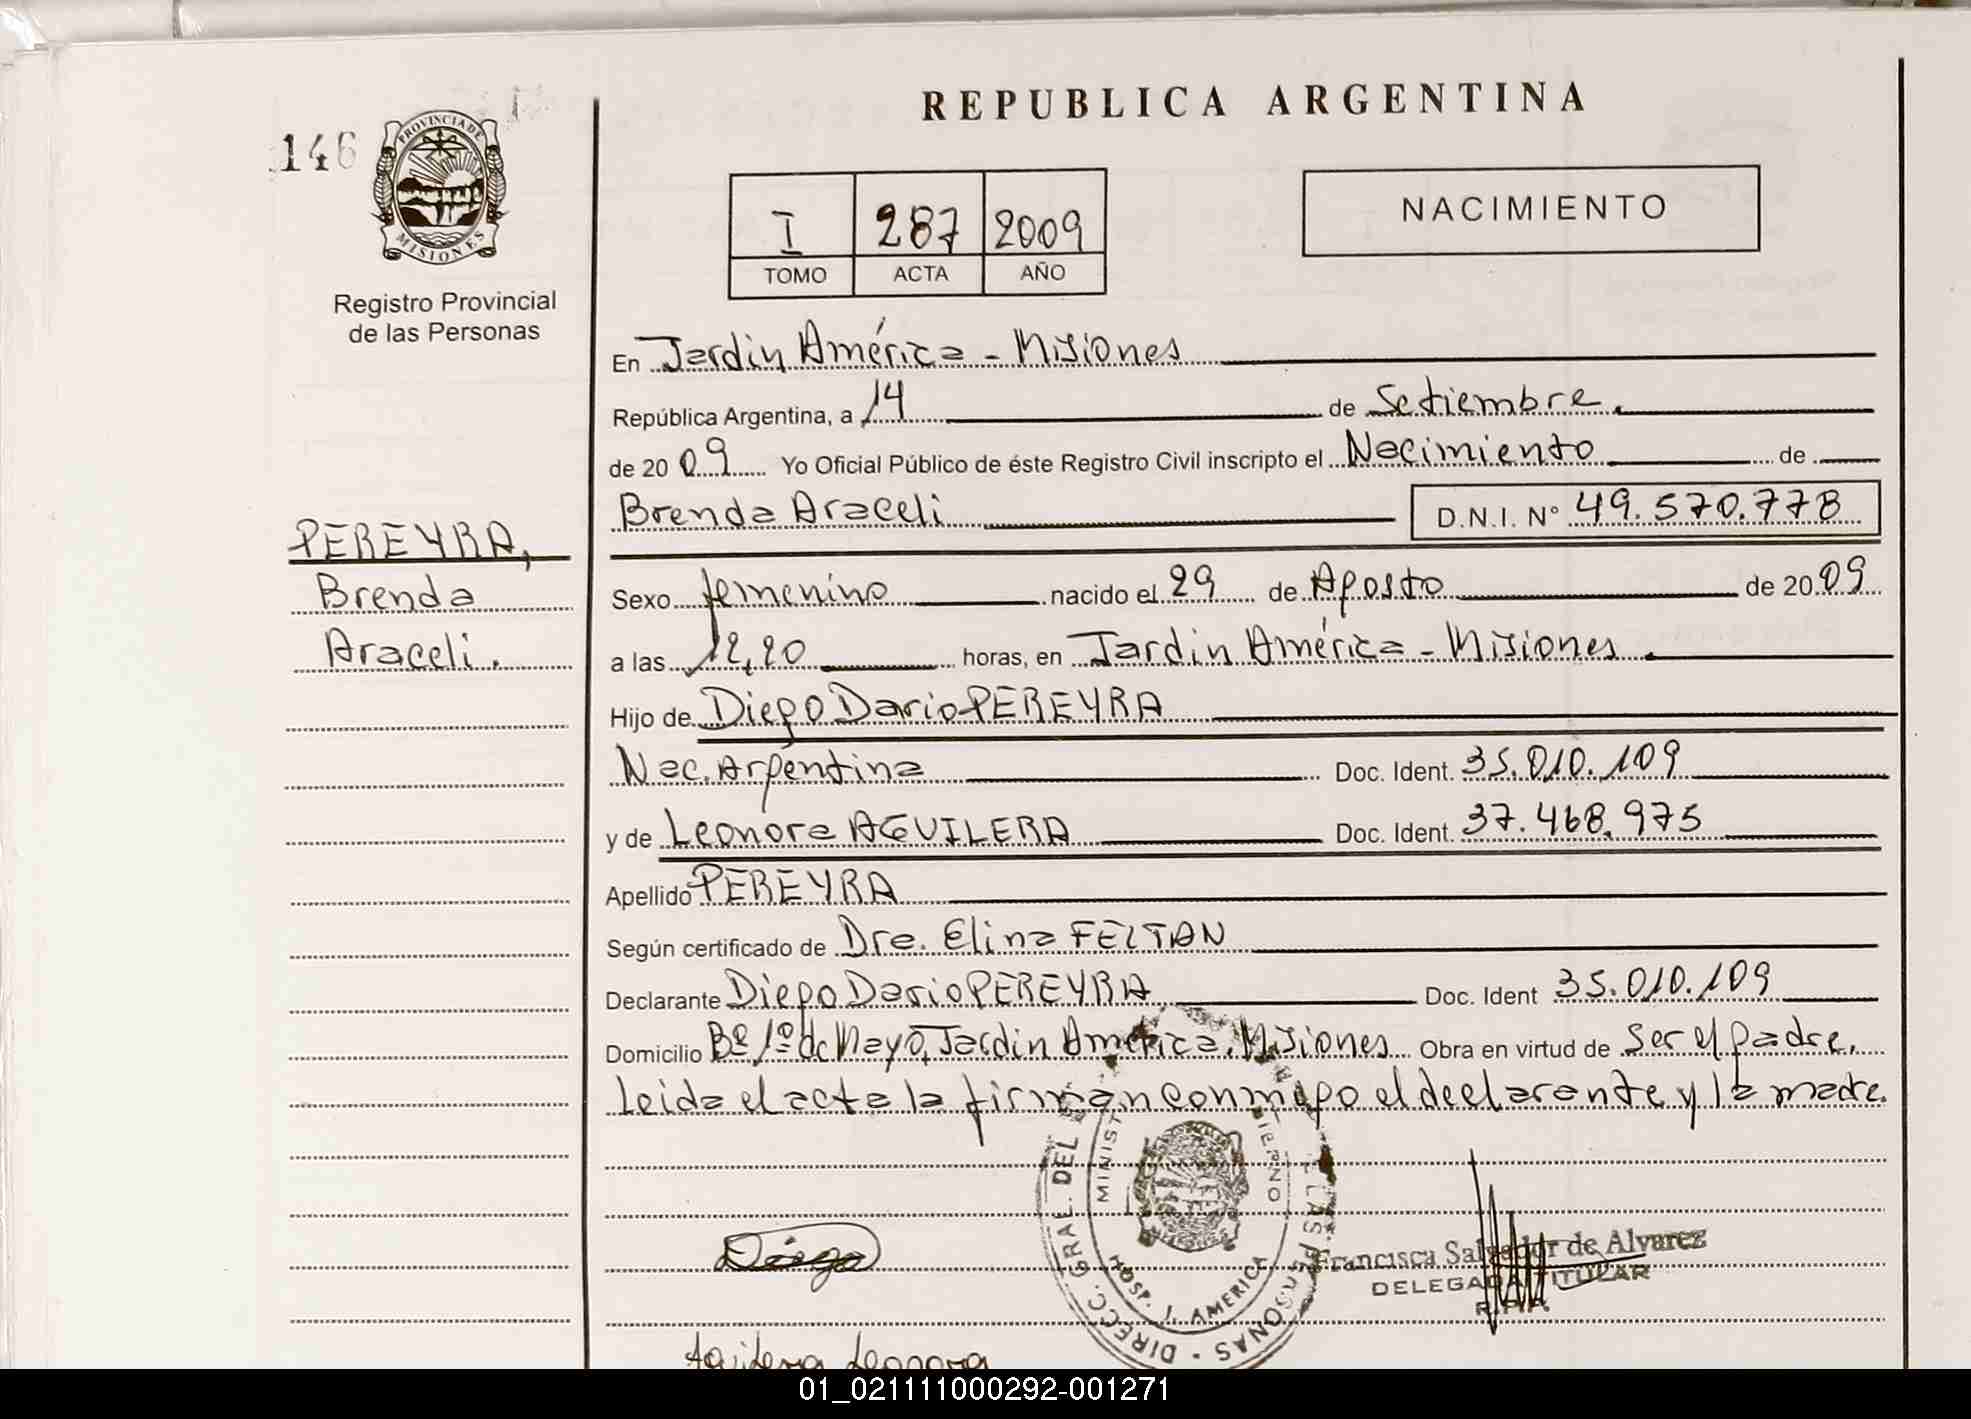 146
PROVINCIA DE
MISIONES
Registro Provincial
de las Personas
PEREYRA,
Brenda
Araceli.
REPUBLICA ARGENTINA
I 287 2009
TOMO ACTA AÑO
NACIMIENTO
En Jardin América - Misiones
República Argentina, a 14 de Setiembre.
de 2009 Yo Oficial Público de éste Registro Civil inscripto el Nacimiento de
Brenda Araceli D.N.I. N° 49.570.778
Sexo femenino nacido el 29 de Agosto de 2009
a las 12,20 horas, en Jardin América - Misiones.
Hijo de Diego Dario PEREYRA
Nac. Argentina Doc. Ident. 35.010.109
y de Leonora AGUILERA Doc. Ident. 37.468.975
Apellido PEREYRA
Según certificado de Dra. Elina FELTAN
Declarante Diego Dario PEREYRA Doc. Ident 35.010.109
Domicilio Bº 1º de Mayo, Jardin América. Misiones Obra en virtud de Ser el padre.
Leida el acta la firman conmigo el declarante y la madre.
DIRECC. GRAL. DEL LAS PERSONAS
MINIST
HOSP. J. AMERICA
Diego
Francisca Salvador de Alvarez
DELEGADA TITULAR
R.P.P.
Aguilera Leonora
01_021111000292-001271